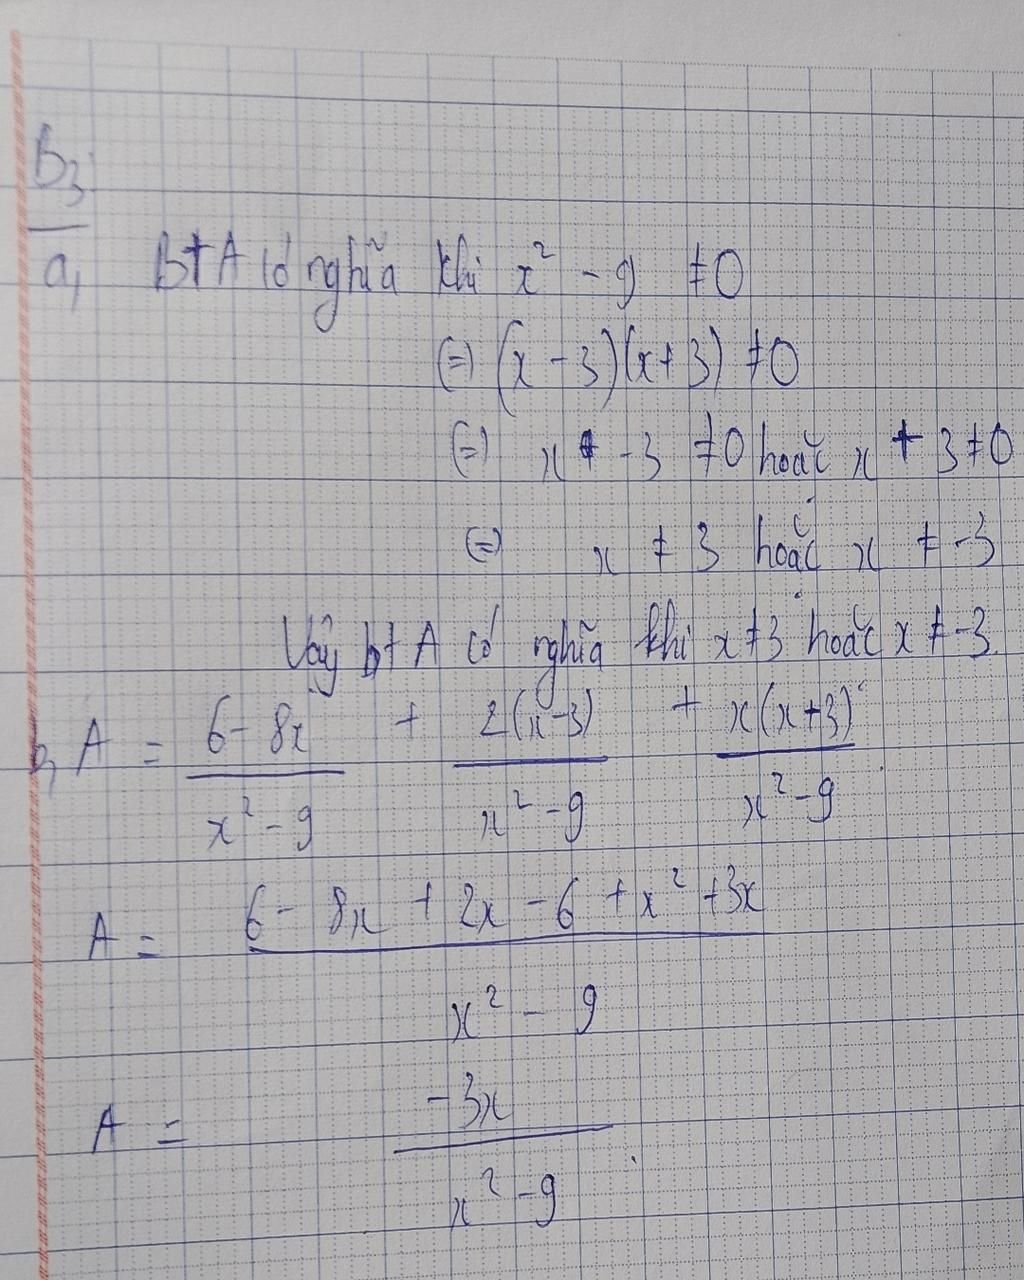 B3
a, BtA có nghĩa khi x² - 9 ≠0
(=) (x - 3)(x+3) ≠0
(=) x - 3 ≠0 hoặc x + 3≠0
(=) x ≠ 3 hoặc x ≠ -3
Vậy bt A có nghĩa khi x≠3 hoặc x ≠ -3.
b, A = (6 - 8x)/(x² - 9) + (2(x-3))/(x² - 9) + (x(x+3))/(x² - 9)
A = (6 - 8x + 2x - 6 + x² + 3x)/(x² - 9)
A = (-3x)/(x² - 9)